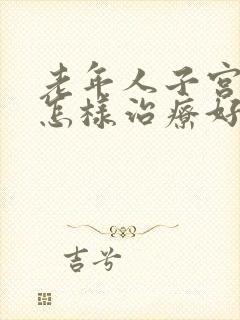 老年人子宮
怎樣治療好
吉兮